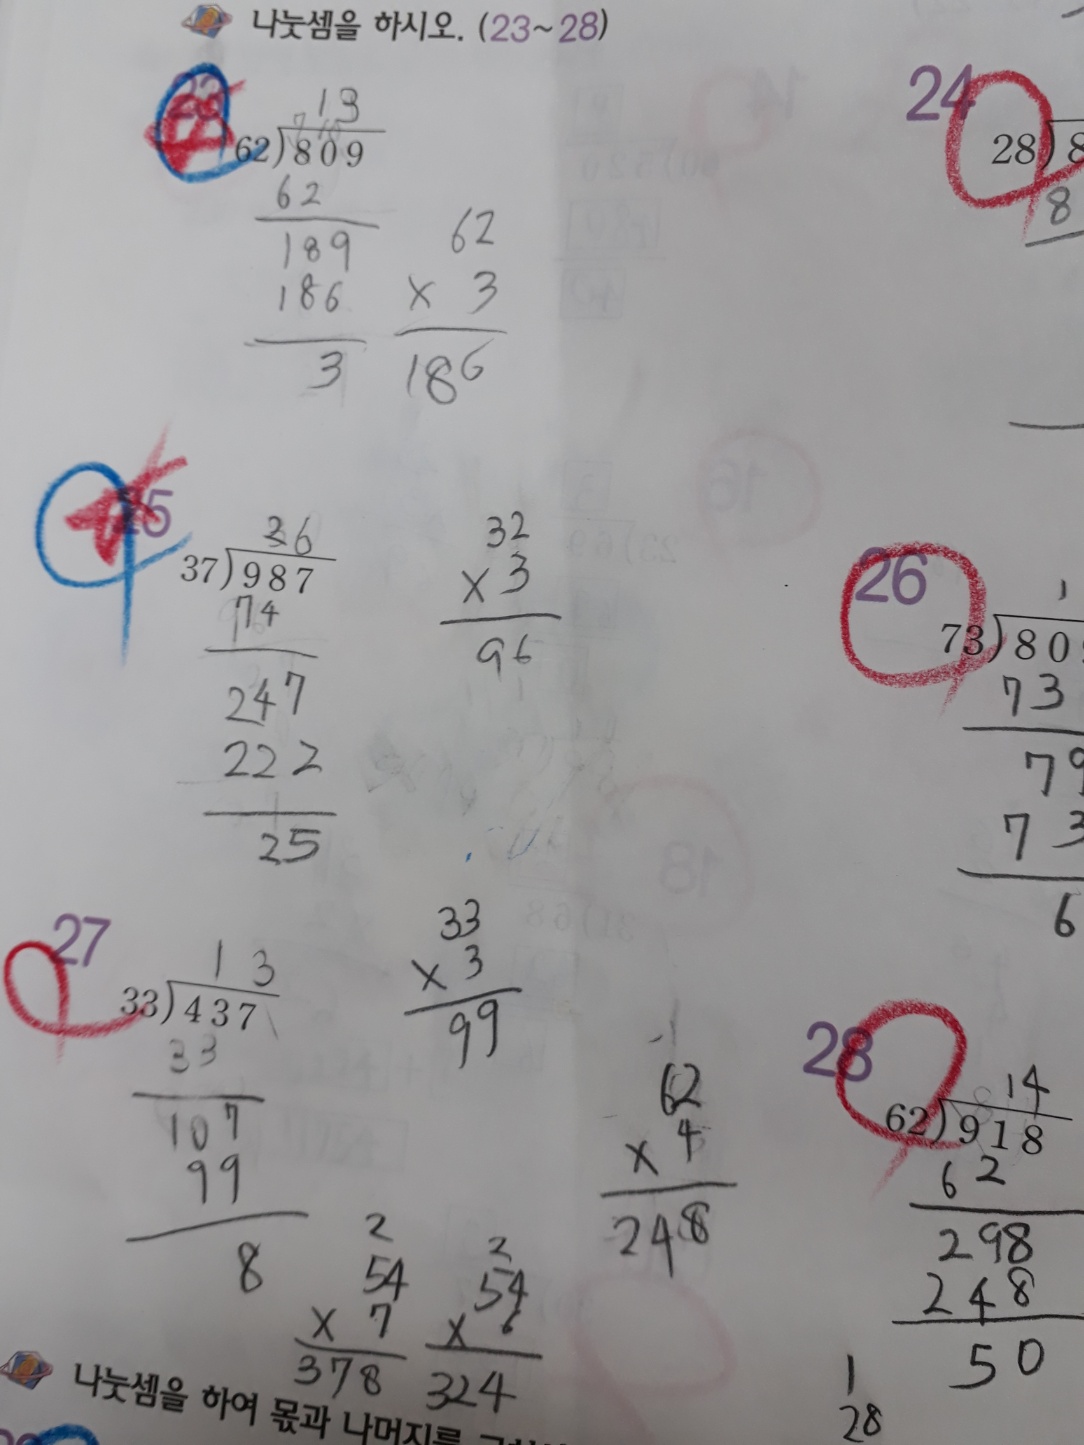 나눗셈을 하시오. (23~28)
13
62)809
62
189
186
3
62
× 3
186
24
28)8
8
25
26
37)987
74
247
222
25
32
× 3
96
26
1
73)809
73
79
73
6
27
13
33)437
33
107
99
8
33
× 3
99
62
× 4
248
28
14
62)918
62
298
248
50
2
54
× 7
378
2
54
× 6
324
1
28
나눗셈을 하여 몫과 나머지를